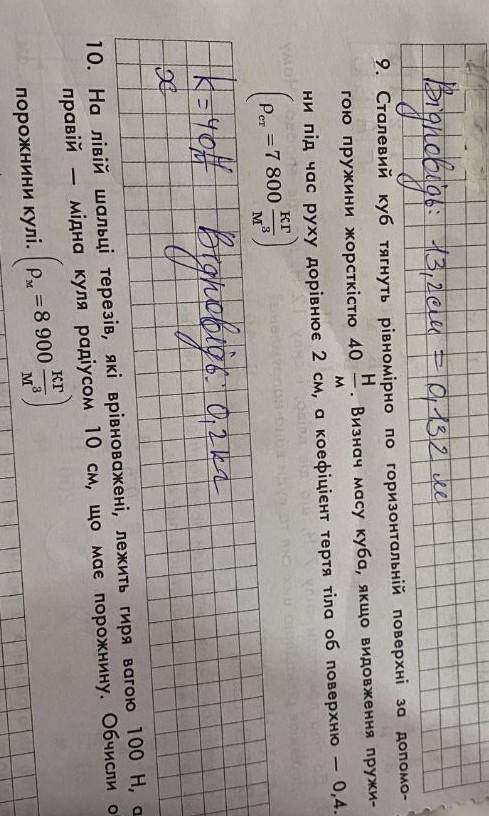 Відповідь: 13,2 см = 0,132 м
9. Сталевий куб тягнуть рівномірно по горизонтальній поверхні за допомо-
гою пружини жорсткістю 40 Н/м. Визнач масу куба, якщо видовження пружи-
ни під час руху дорівнює 2 см, а коефіцієнт тертя тіла об поверхню – 0,4.
(ρст = 7 800 кг/м³)
k = 40 Н Відповідь: 0,2 кг
x
10. На лівій шальці терезів, які врівноважені, лежить гиря вагою 100 Н, а
правій – мідна куля радіусом 10 см, що має порожнину. Обчисли о
порожнини кулі. (ρм = 8 900 кг/м³)